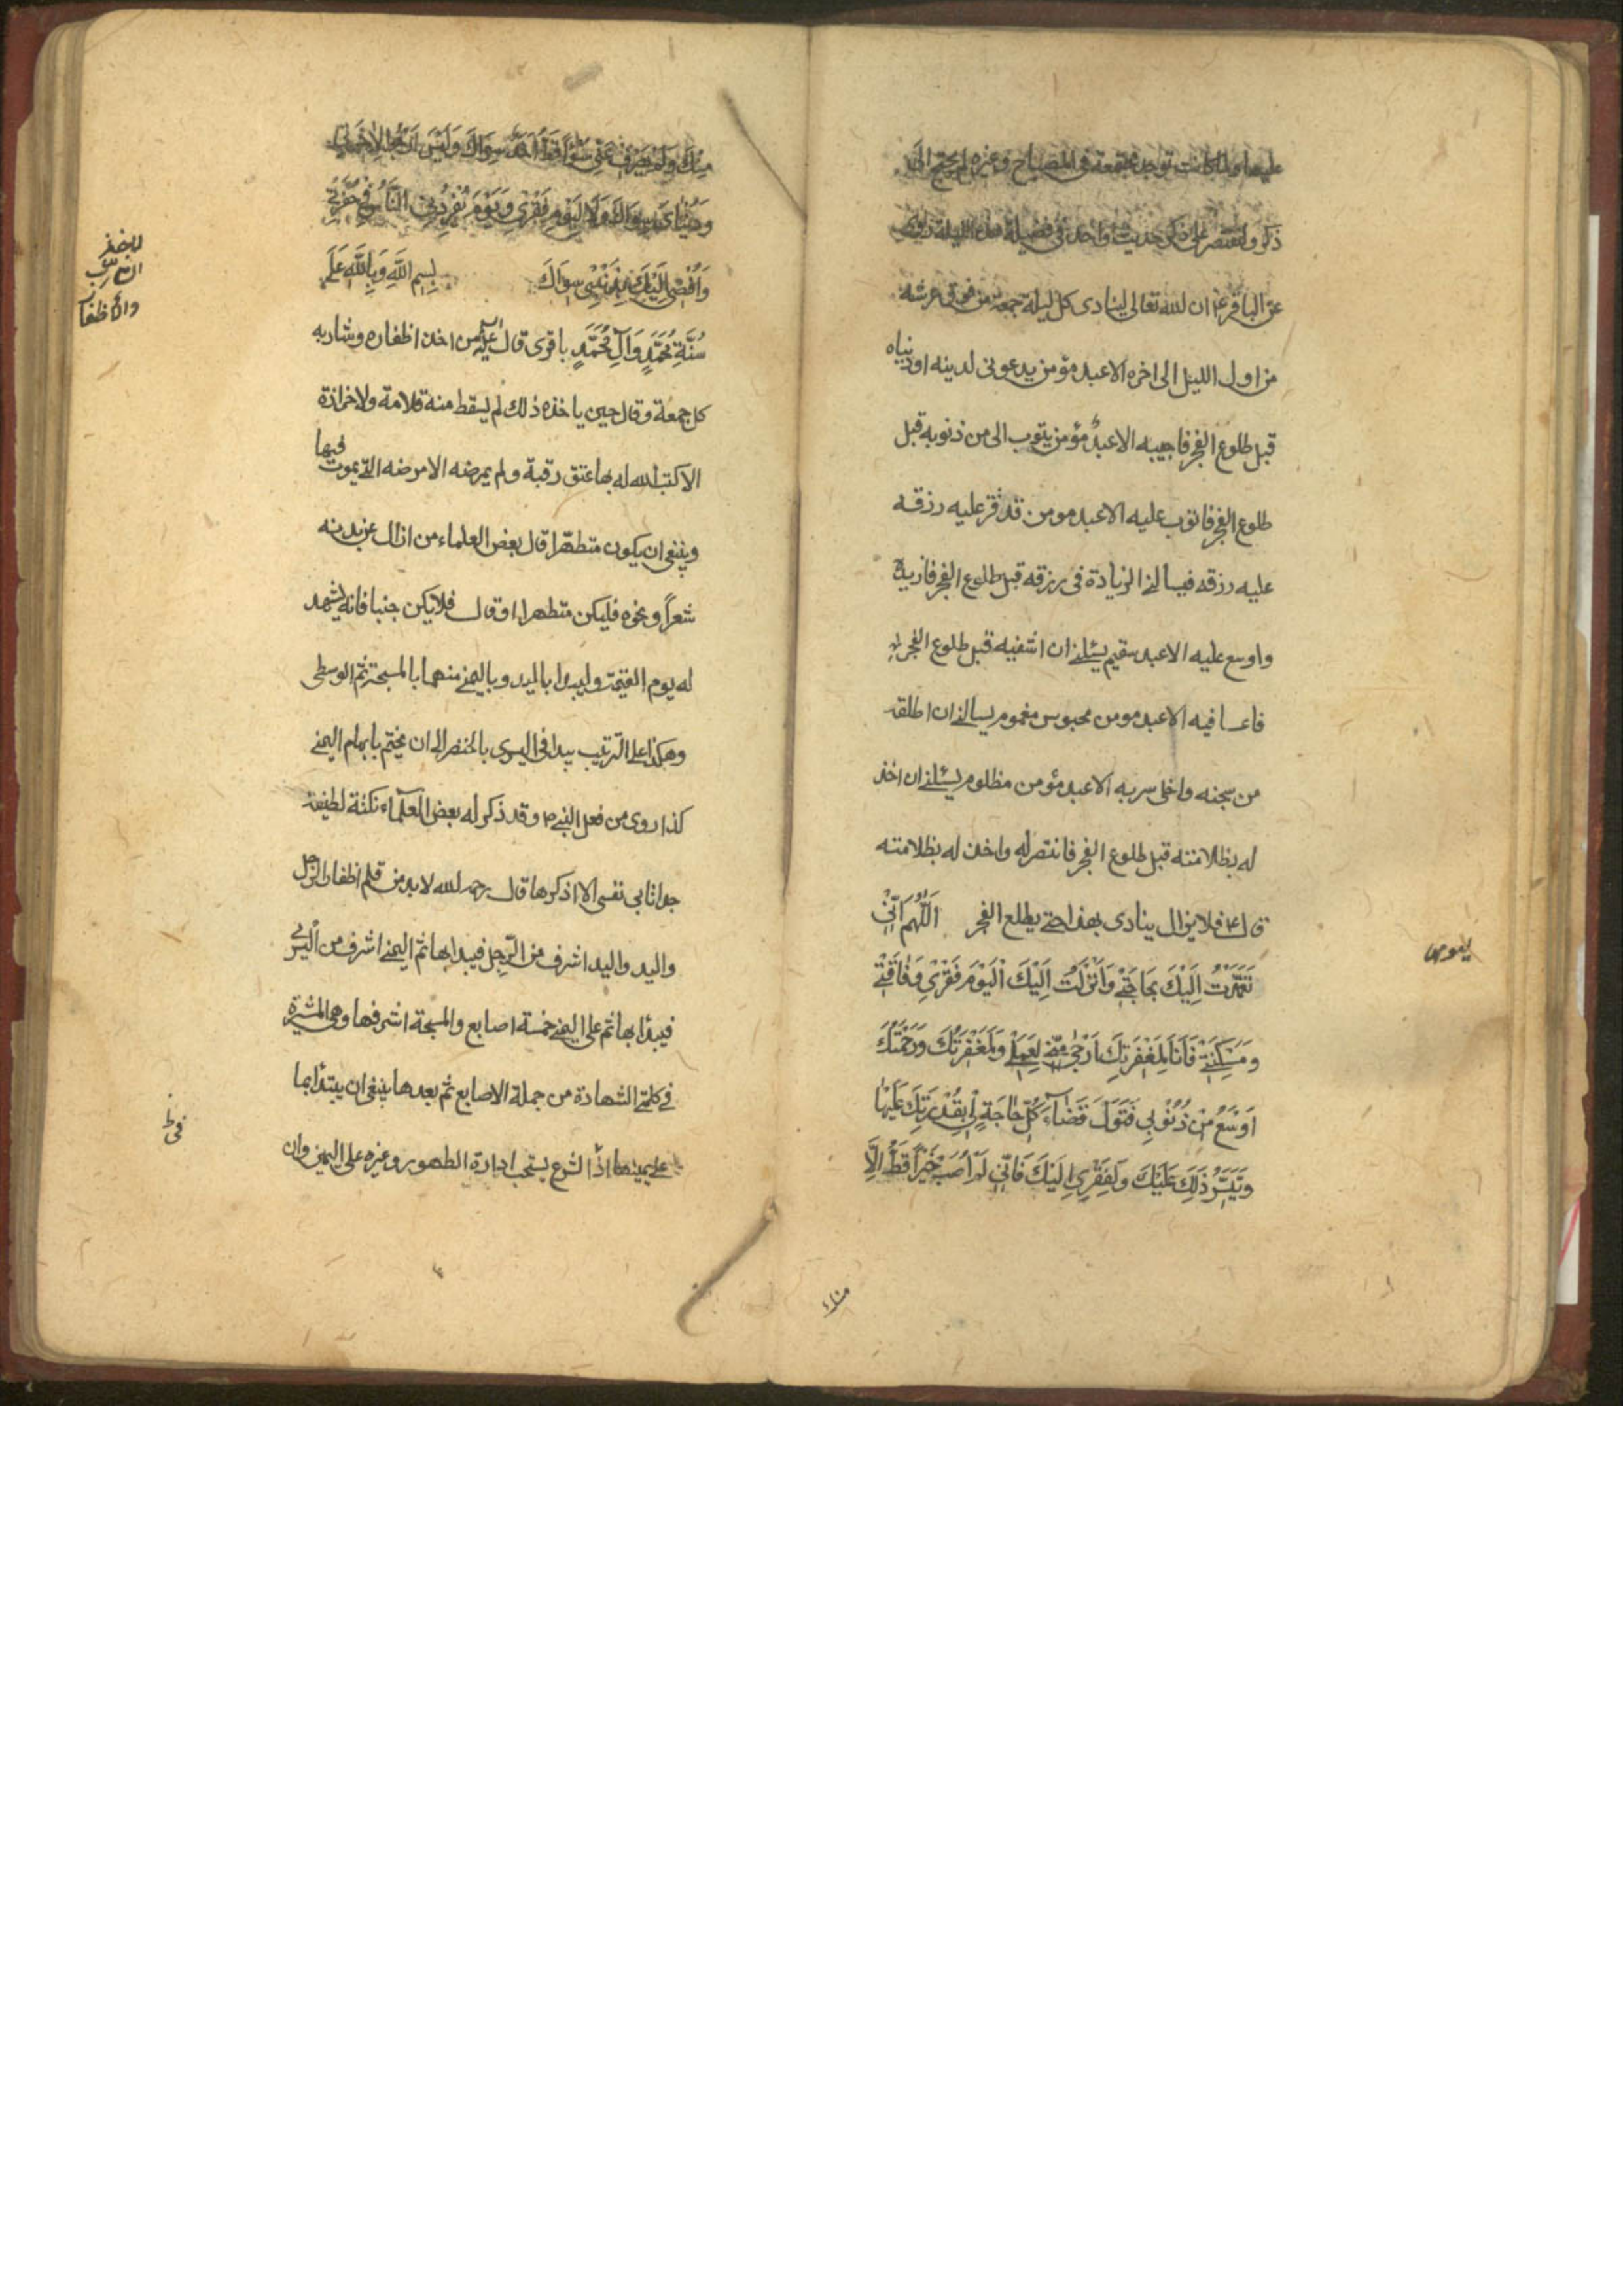 عليها ولما كانت توجد مجتمعة في المصباح وغيره لم يحتج الى
ذكر ولنقتصر على ذكر حديث واحد في فضيلة هذه الليلة
عن الباقر ع ان لله تعالى لينادى كل ليلة جمعة من فوق عرشه
من اول الليل الى اخره الا عبد مؤمن يدعونى لدينه او دنياه
قبل طلوع الفجر فاجيبه الا عبدٌ مؤمن يتوب الى من ذنوبه قبل
طلوع الفجر فاتوب عليه الا عبد مومن قد قتر عليه رزقه
عليه رزقه فيسالنى الزيادة فى رزقه قبل طلوع الفجر فازيده
واوسع عليه الا عبد سقيم يسئلنى ان اشفيه قبل طلوع الفجر
فاعافيه الا عبد مومن محبوس مغموم يسالنى ان اطلقه
من سجنه واخلى سربه الا عبد مؤمن مظلوم يسئلنى ان اخذ
له بظلامته قبل طلوع الفجر فانتصر له واخذ له بظلامته
قال ع فلا يزال ينادى بهذا حتى يطلع الفجر اَللّٰهُمَّ اِنّى
تَعَمَّدْتُ اِلَيْكَ بِحَاجَتى وَاَنْزَلْتُ اِلَيْكَ الْيَوْمَ فَقْرِي وَفَاقَتِى
وَمَسْكَنَتى فَاَنَا لِمَغْفِرَتِكَ اَرْجٰى مِنّى لِعَمَلِى وَلَمَغْفِرَتُكَ وَرَحْمَتُكَ
اَوْسَعُ مِنْ ذُنُوْبِي فَتَوَلَّ قَضَآءَ كُلِّ حَاجَةٍ لِى بِقُدْرَتِكَ عَلَيْهَا
وَتَيَسُّرِ ذٰلِكَ عَلَيْكَ وَلِفَقْرِي اِلَيْكَ فَاِنّى لَمْ اُصِبْ خَيْراً قَطُّ اِلَّا
مِنْكَ وَلَمْ يَصْرِفْ عَنّى سُوْءاً قَطُّ اَحَدٌ سِوَاكَ وَلَيْسَ اَرْجُو لِاٰخِرَتِي
وَدُنْيَاىَ سِوَاكَ وَلَا لِيَوْمِ فَقْرِي وَيَوْمَ يُفْرِدُنِي النَّاسُ فِي حُفْرَتِي
وَاُفْضِى اِلَيْكَ بِذَنْبِى سِوَاكَ بِسْمِ اللهِ وَبِاللهِ عَلَى
سُنَّةِ مُحَمَّدٍ وَآلِ مُحَمَّدٍ باقرى قال ع من اخذ اظفاره وشاربه
كل جمعة وقال حين ياخذه ذلك لم يسقط منه قلامة ولا خزازة
الا كتب الله له بها عتق رقبة ولم يمرضه الا مرضه التى يموت فيها
وينبغى ان يكون متطهّرا قال بعض العلماء من ازال عن بدنه
شعراً ونحوه فليكن متطهرا او قال فلا يكن جنبا فانه يشهد
له يوم القيمة وليبدا باليد وباليمنى منهما بالمسبحة ثم الوسطى
وهكذا على الترتيب يبدا فى اليسرى بالخنصر الى ان يختم بابهام اليمنى
كذا روى من فعل النبى ص وقد ذكر له بعض العلماء نكتة لطيفة
جدا تابى نفسى الا اذكرها قال رحمه الله لابد من قلم اظفار الرجل
واليد واليد اشرف من الرّجل فيبدا بها ثم اليمنى اشرف من اليسرى
فيبدأ بها ثم على اليمنى خمسة اصابع والمسبحة اشرفها وهى المشيرة
فى كلمتى الشهادة من جملة الاصابع ثم بعدها ينبغى ان يبتدأ بما
على يمينها اذ الشرع يستحب ادارة الطهور وغيره على اليمين وان
والاظفار